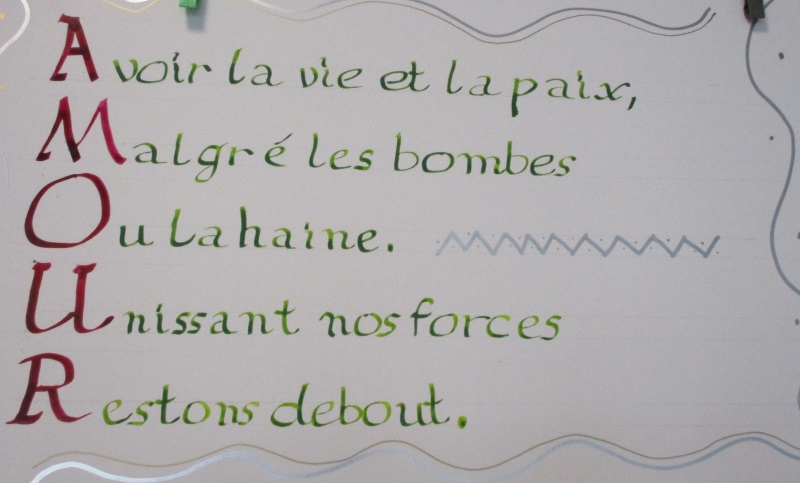 Avoir la vie et la paix,
Malgré les bombes
Ou la haine.
Unissant nos forces
Restons debout.